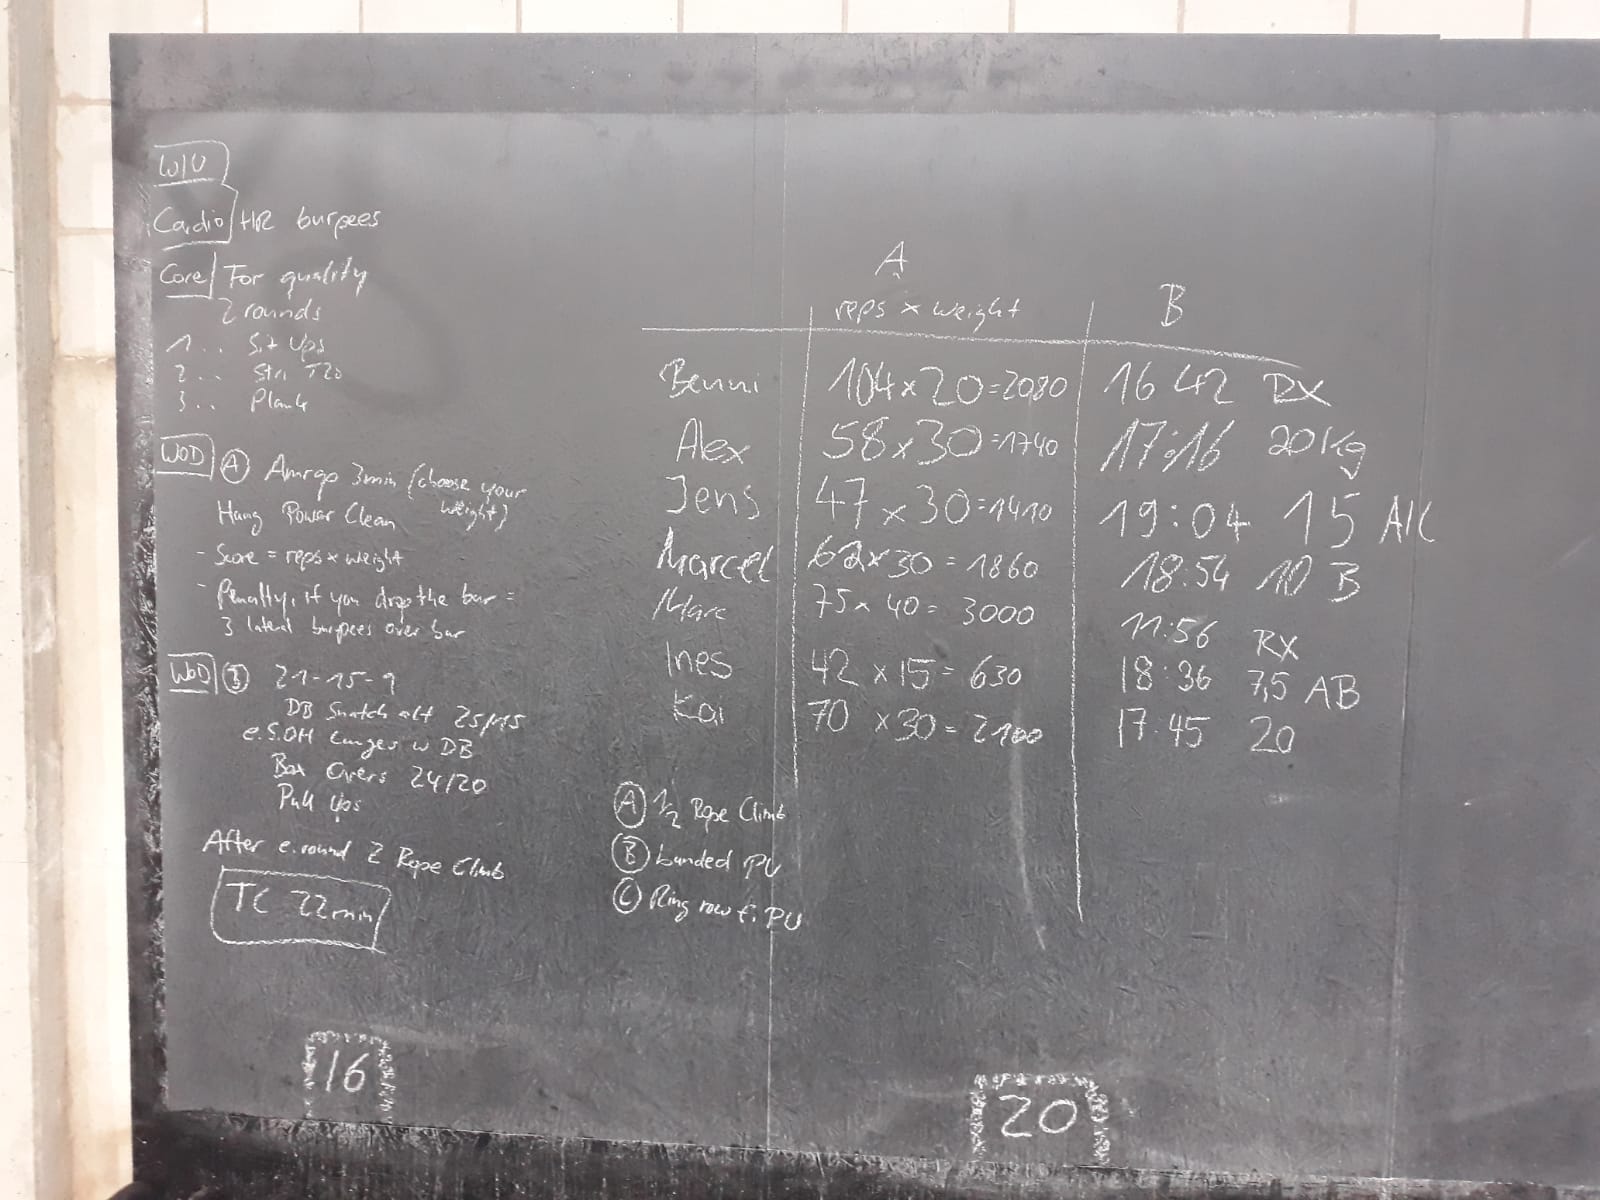 W/U
Cardio HR burpees
Core For quality
2 rounds
1.. Sit Ups
2.. Stri T2B
3.. Plank
WOD A Amrap 3min (choose your weight)
Hang Power Clean
- Score = reps x weight
- Penalty, if you drop the bar =
3 lateral burpees over bar
WOD B 21-15-9
DB Snatch alt 25/15
e.S.OH Lunges w DB
Box Overs 24/20
Pull Ups
After e. round 2 Rope Climb
TC 22min
16
A
B
reps x weight
Benni 104x20=2080 16 42 RX
Alex 58x30=1740 17:16 20Kg
Jens 47x30=1410 19:04 15 A/C
Marcel 62x30=1860 18:54 10 B
Marc 75x40=3000 11:56 RX
Ines 42x15=630 18:36 7,5 AB
Kai 70x30=2100 17:45 20
A 1/2 Rope Climb
B banded PU
C Ring row f. PU
20